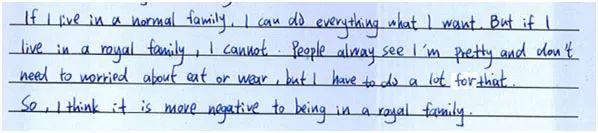 If I live in a normal family, I can do everything what I want. But if I
live in a royal family, I cannot. People alway see I'm pretty and don't
need to worried about eat or wear, but I have to do a lot for that.
So, I think it is more negative to being in a royal family.